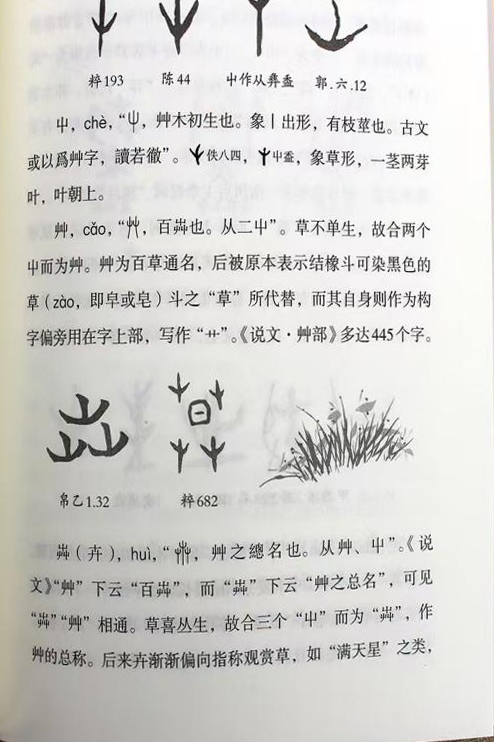 粹193 陈44 屮作从彝盉 郭.六.12
屮，chè，“屮，艸木初生也。象丨出形，有枝莖也。古文
或以爲艸字，讀若徹”。佚八四，屮盉，象草形，一茎两芽
叶，叶朝上。
艸，cǎo，“艸，百芔也。从二屮”。草不单生，故合两个
屮而为艸。艸为百草通名，后被原本表示结橡斗可染黑色的
草（zào，即皁或皂）斗之“草”所代替，而其自身则作为构
字偏旁用在字上部，写作“艹”。《说文·艸部》多达445个字。
帛乙1.32 粹682
芔（卉），huì，“芔，艸之總名也。从艸、屮”。《说
文》“艸”下云“百芔”，而“芔”下云“艸之总名”，可见
“芔”“艸”相通。草喜丛生，故合三个“屮”而为“芔”，作
艸的总称。后来卉渐渐偏向指称观赏草，如“满天星”之类，